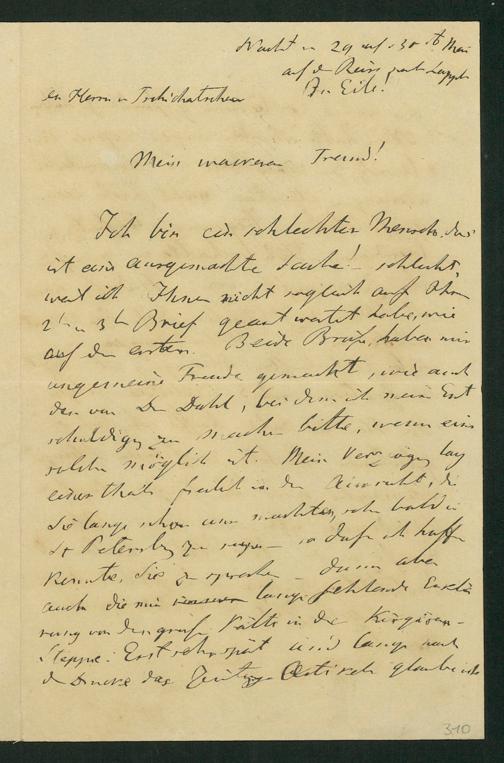 Nacht v 29 auf 30 t Mai
auf der Reise nach Lappl
In Eile.
an Herrn v Tschichatschew
Mein wackerer Freund!
Ich bin ein schlechter Mensch, das
ist eine ausgemachte Sache! – schlecht,
weil ich Ihnen nicht sogleich auf Ihren
2ten u 3ten Brief geantwortet habe, wie
auf den ersten. Beide Briefe haben mir
ungemeine Freude gemacht, wie auch
der von Dr Dahl, bei dem ich mein Ent
schuldigung zu machen bitte, wenn eine
solche möglich ist. Mein Verzögern lag
eines theils in der Aussicht, die
Sie lange schon uns machten, sehr bald in
St Petersburg zu seyn – so daß ich hoffen
konnte, Sie zu sprechen – dann aber
auch die mir lange fehlende Erklä
rung von der großen Kälte in der Kirgisen-
Steppe. Erst sehr spät und lange nach
d Drucke des glaube ich
310